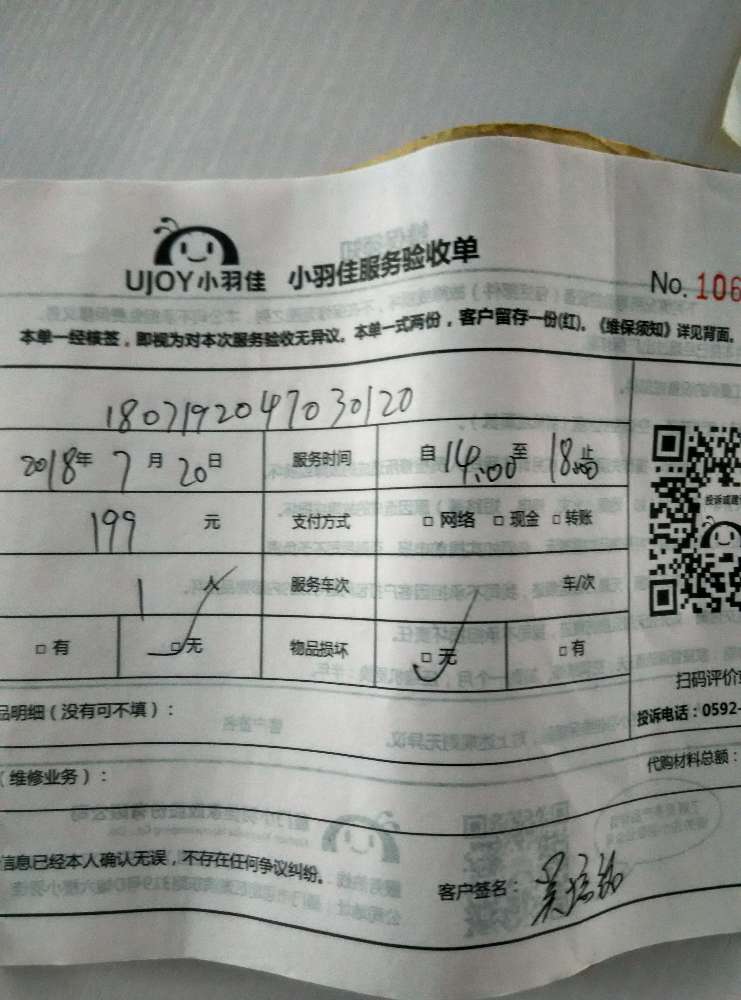 UJOY小羽佳 小羽佳服务验收单
No. 106
本单一经核签，即视为对本次服务验收无异议。本单一式两份，客户留存一份(红)。《维保须知》详见背面。
1807192047030120
2018年 7月 20日 服务时间 自 14:00 至 18:00 止
199 元 支付方式 □ 网络 □ 现金 □ 转账
投诉或建
1 人 服务车次 车/次
□ 有 □ 无 物品损坏 □ 无 □ 有
扫码评价
品明细（没有可不填）：
投诉电话：0592-
（维修业务）：
代购材料总额：
信息已经本人确认无误，不存在任何争议纠纷。
客户签名：